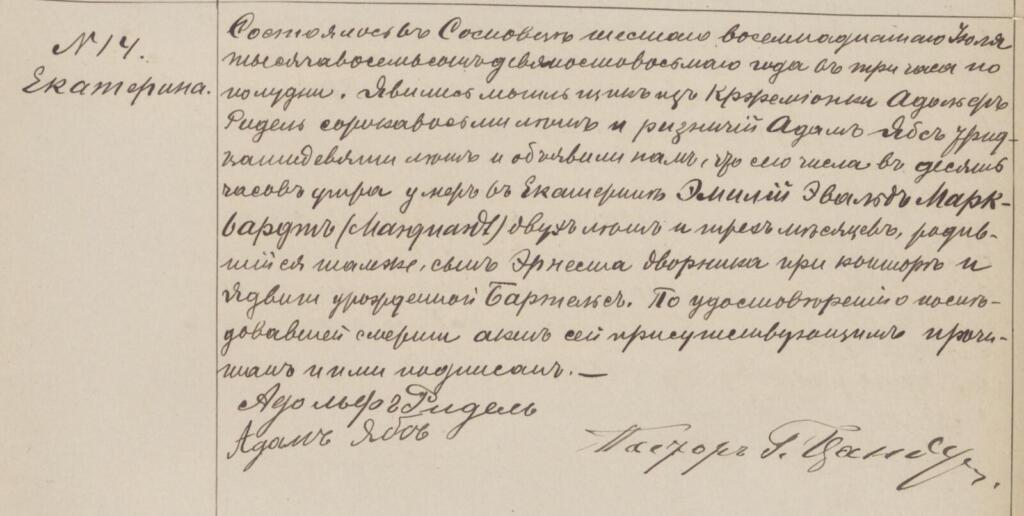 N 14.
Екатерина.
Состоялось въ Сосновцѣ шестаго восемнадцатаго Іюля
тысяча восемьсотъ девяностовосьмаго года въ три часа по
полудни. Явились могильщикъ изъ Адольфъ
Ридель сорокавосьми лѣтъ и ризничій Адамъ Ябсъ трид-
цатидевяти лѣтъ и объявили намъ, что сего числа въ десять
часовъ утра умеръ въ Екатеринѣ Эмилій Эвальдъ Марк-
вардтъ (Marquardt) двухъ лѣтъ и трехъ мѣсяцевъ, родив-
шійся тамже, сынъ Эрнеста дворника при конторѣ и
Ядвиги урожденной Бартельсъ. По удостовѣреніи о послѣ-
довавшей смерти актъ сей присутствующимъ прочи-
танъ и ими подписанъ. —
Адольфъ Ридель
Адамъ Ябсъ
Пасторъ Г.